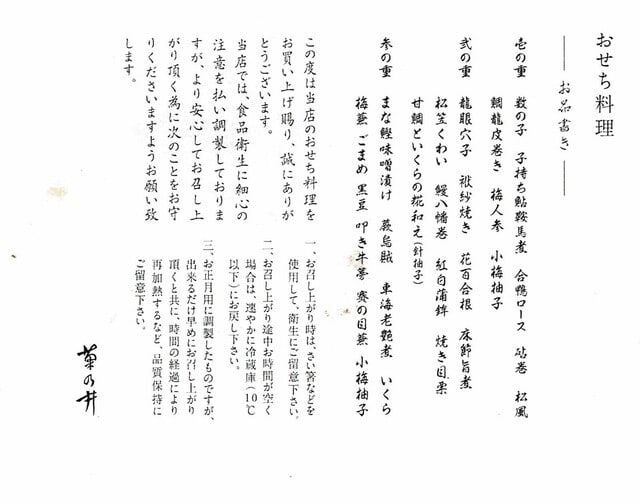 おせち料理
お品書き
壱の重 数の子 子持ち鮎鞍馬煮 合鴨ロース 砧巻 松風
鯛龍皮巻き 梅人参 小梅柚子
弐の重 龍眼穴子 袱紗焼き 花百合根 床節旨煮
松笠くわい 鰻八幡巻 紅白蒲鉾 焼き目栗
甘鯛といくらの糀和え(針柚子)
参の重 まな鰹味噌漬け 蕨烏賊 車海老艶煮 いくら
梅蕪 ごまめ 黒豆 叩き牛蒡 賽の目蕪 小梅柚子
この度は当店のおせち料理を
お買い上げ賜り、誠にありが
とうございます。
当店では、食品衛生に細心の
注意を払い調製しておりま
すが、より安心してお召し上
がり頂く為に次のことをお守
りくださいますようお願い致
します。
一、お召し上がり時は、さい箸などを
使用して、衛生にご留意下さい。
二、お召し上がり途中お時間が空く
場合は、速やかに冷蔵庫(10℃
以下)にお戻し下さい。
三、お正月用に調製したものですが、
出来るだけ早めにお召し上がり
頂くと共に、時間の経過により
再加熱するなど、品質保持に
ご留意下さい。
菊乃井